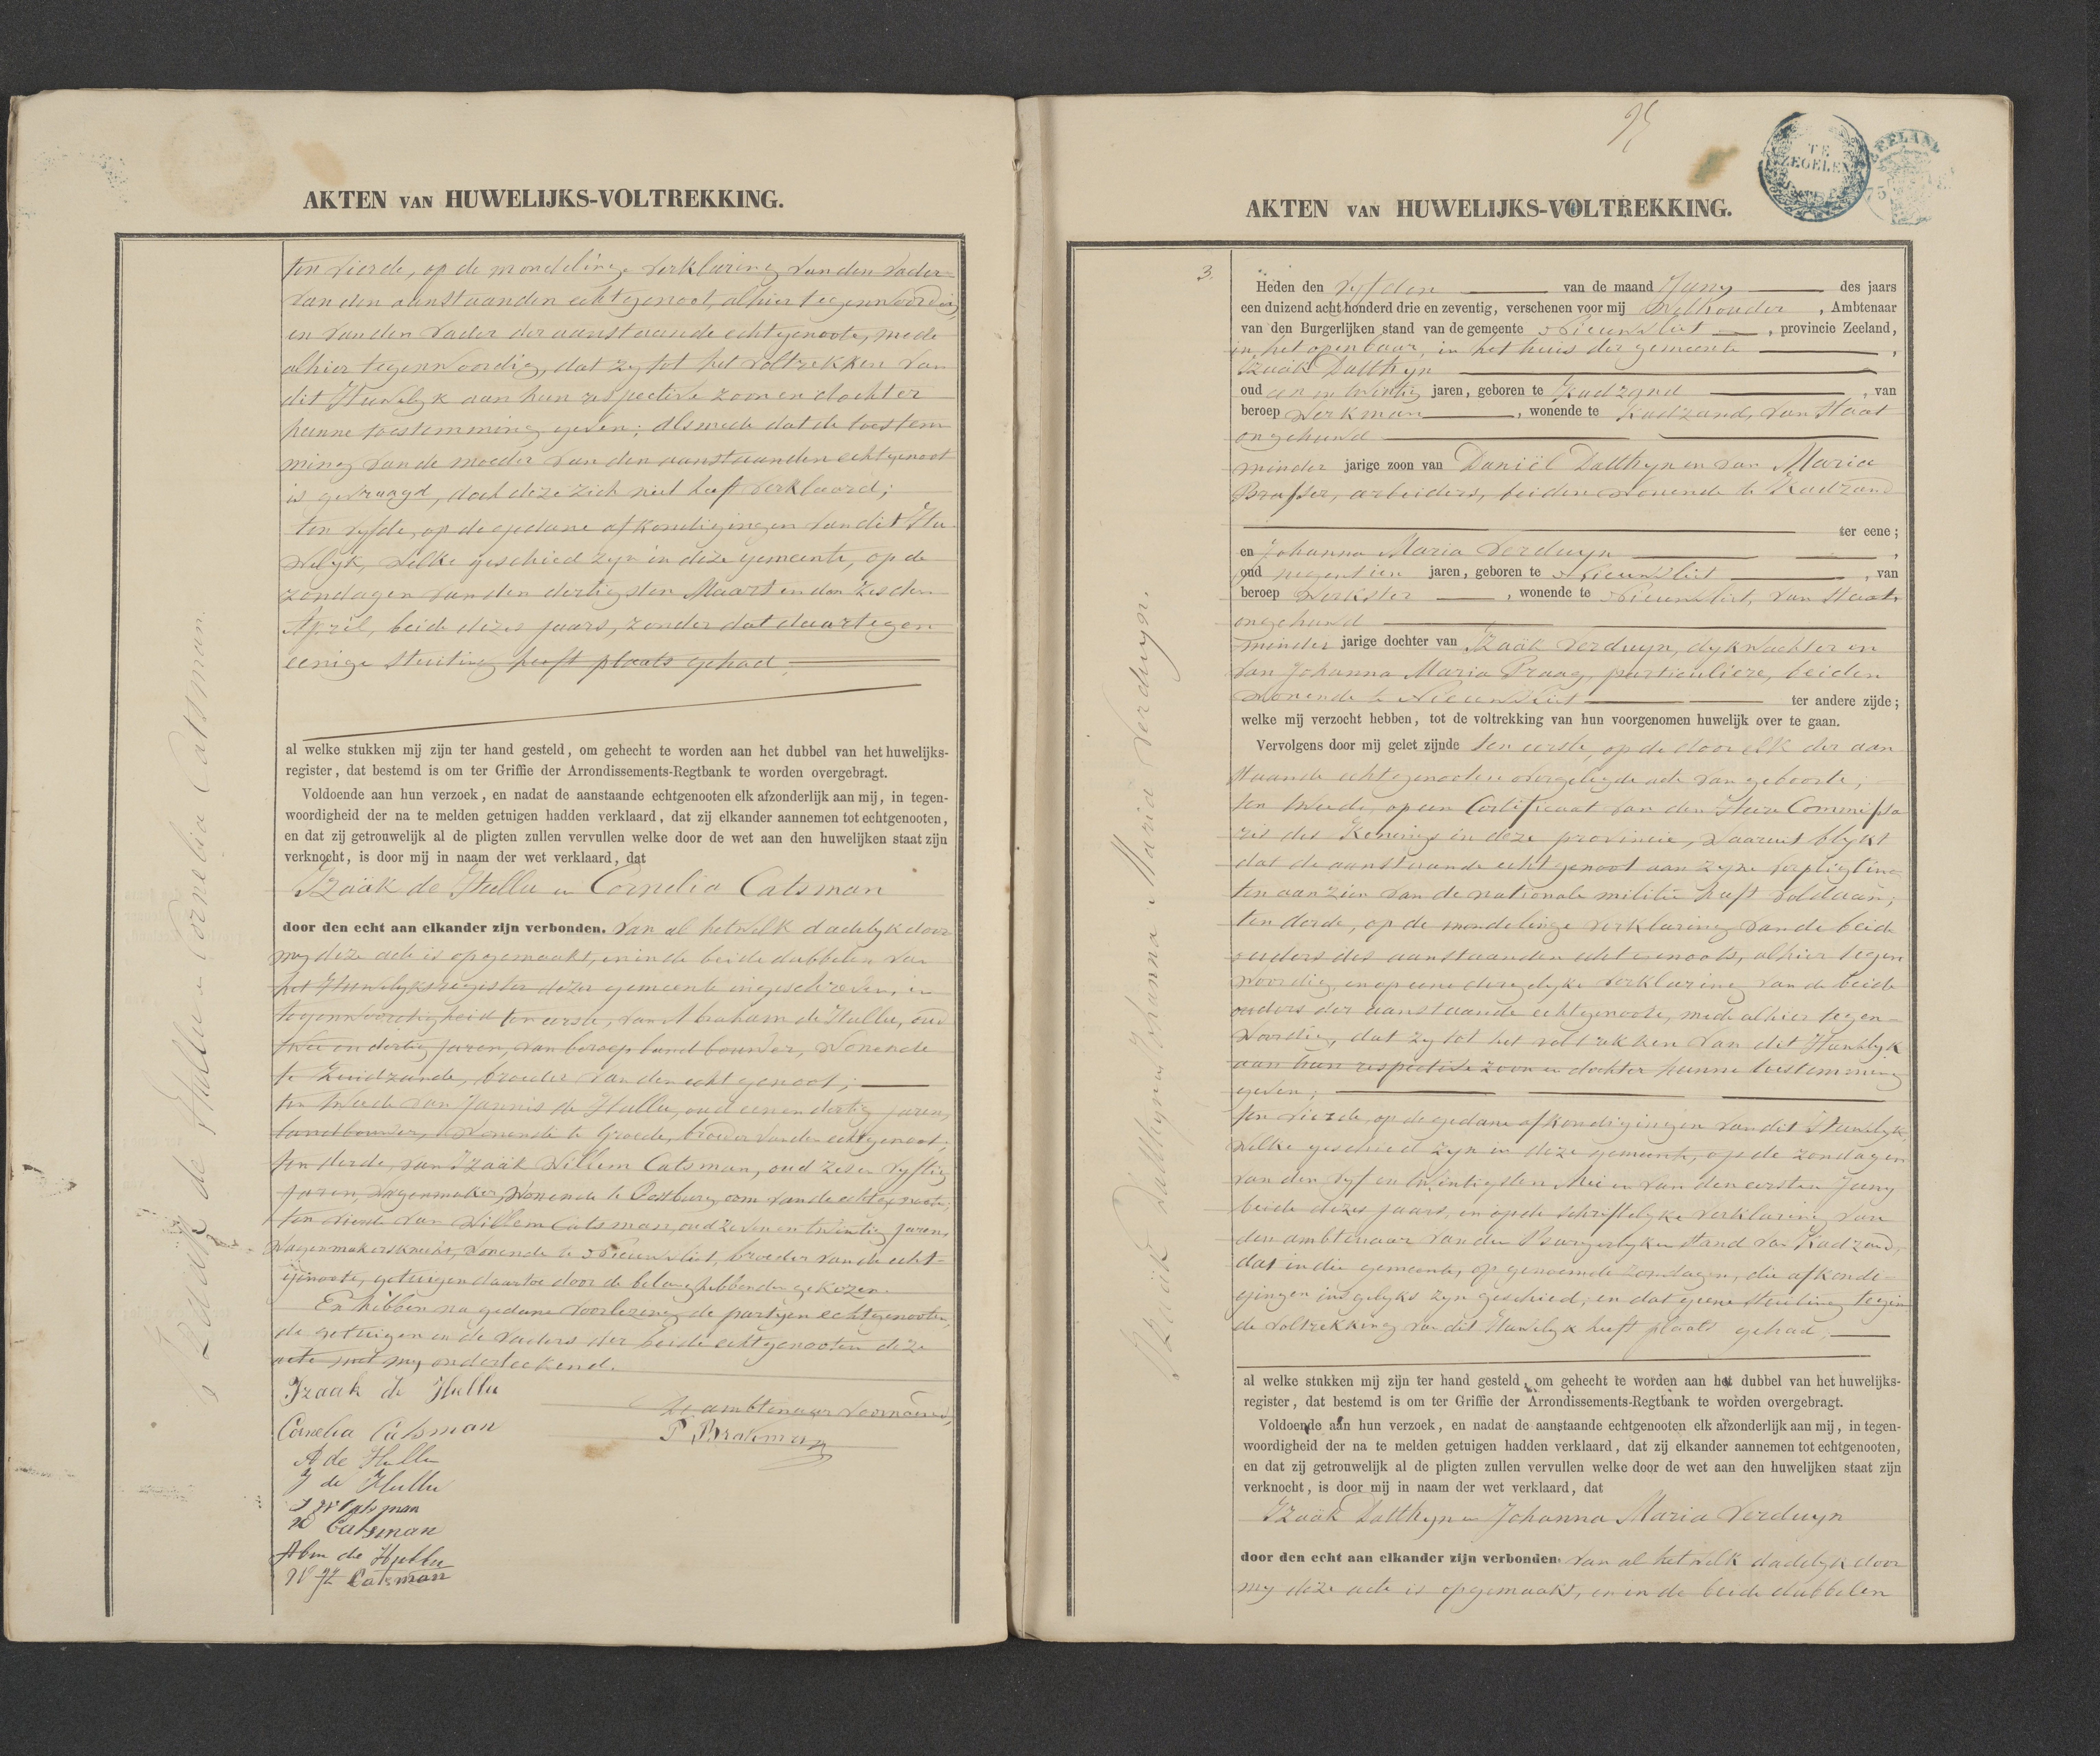 AKTEN VAN HUWELIJKS-VOLTREKKING.
Izaäk de Hullu en Cornelia Catsman.
ten vierde, op de mondelinge verklaring van den vader
van den aanstaanden echtgenoot, alhier tegenwoordig
en van den vader der aanstaande echtgenoote, mede
alhier tegenwoordig, dat zy tot het voltrekken van
dit Huwelyk aan hun respective zoon en dochter
hunne toestemming geven; alsmede dat de toestem
ming van de moeder van den aanstaanden echtgenoot
is gevraagd, doch deze zich niet heeft verklaard;
ten vyfde, op de gedane afkondigingen van dit Hu
welyk, welke geschied zyn in deze gemeente, op de
zondagen van den dertigsten Maart en den zesden
April, beide dezes jaars, zonder dat daartegen
eenige stuiting heeft plaats gehad
al welke stukken mij zijn ter hand gesteld, om gehecht te worden aan het dubbel van het huwelijks-
register, dat bestemd is om ter Griffie der Arrondissements-Regtbank te worden overgebragt.
Voldoende aan hun verzoek, en nadat de aanstaande echtgenooten elk afzonderlijk aan mij, in tegen-
woordigheid der na te melden getuigen hadden verklaard, dat zij elkander aannemen tot echtgenooten,
en dat zij getrouwelijk al de pligten zullen vervullen welke door de wet aan den huwelijken staat zijn
verknocht, is door mij in naam der wet verklaard, dat
Izaäk de Hullu en Cornelia Catsman
door den echt aan elkander zijn verbonden. Van al hetwelk dadelyk door
my deze acte is opgemaakt, en in de beide dubbelen van
het Huwelyksregister dezer gemeente ingeschreven, in
tegenwoordigheid ten eerste, van Abraham de Hullu, oud
twee en dertig jaren, van beroep landbouwer, wonende
te Zuidzande, broeder van den echtgenoot;
ten tweede van Jannis de Hullu, oud eenendertig jaren,
landbouwer, wonende te Groede, broeder van den echtgenoot;
ten derde, van Izaäk Willem Catsman, oud zes en vyftig
jaren, wagenmaker, wonende te Oostburg, oom van de echtgenoote;
ten vierde van Willem Catsman, oud zeven en twintig jaren,
wagenmakersknecht, wonende te Nieuwvliet, broeder van de echt-
genoote, getuigen daartoe door de belanghebbenden gekozen.
En hebben na gedane voorlezing de partyen echtgenooten,
de getuigen en de vaders der beide echtgenooten deze
acte met my onderteekend.
Izaak de Hullu
De ambtenaar voornoemd,
Cornelia Catsman
P. Brakman
A de Hullu
J de Hullu
I W Catsman
W Catsman
Abm de Hullu
W Catsman
TE ZEGELEN
ZEELAND
AKTEN VAN HUWELIJKS-VOLTREKKING.
3.
Izaäk Datthyn en Johanna Maria Verduyn.
Heden den vyfden van de maand Juny des jaars
een duizend acht honderd drie en zeventig, verschenen voor mij Wethouder, Ambtenaar
van den Burgerlijken stand van de gemeente Nieuwvliet, provincie Zeeland,
in het openbaar, in het huis der gemeente,
Izaäk Datthyn
oud een en twintig jaren, geboren te Kadzand, van
beroep werkman, wonende te Kadzand, van staat
ongehuwd
minder jarige zoon van Daniël Datthyn en van Maria
Brasser, arbeiders, beiden wonende te Kadzand
ter eene;
en Johanna Maria Verduyn,
oud negentien jaren, geboren te Nieuwvliet, van
beroep werkster, wonende te Nieuwvliet, van staat
ongehuwd
minder jarige dochter van Izaäk Verduyn, dykwachter en
van Johanna Maria Praag, particuliere, beiden
wonende te Nieuwvliet ter andere zijde;
welke mij verzocht hebben, tot de voltrekking van hun voorgenomen huwelijk over te gaan.
Vervolgens door mij gelet zijnde ten eerste, op de door elk der aan
staande echtgenooten overgelegde acte van geboorte;
ten tweede, op een Certificaat van den Heer Commissa
ris des Konings in deze provincie, waaruit blykt
dat de aanstaande echtgenoot aan zyne verpligting
ten aanzien van de nationale militie heeft voldaan;
ten derde, op de mondelinge verklaring van de beide
ouders des aanstaanden echtgenoots, alhier tegen
woordig en op eene dergelyke verklaring van de beide
ouders der aanstaande echtgenoote, mede alhier tegen-
woordig, dat zy tot het voltrekken van dit Huwelyk
aan hun respective zoon en dochter hunne toestemming
geven;
ten vierde, op de gedane afkondigingen van dit Huwelyk,
welke geschied zyn in deze gemeente, op de zondagen
van den vyf en twintigsten Mei en van den eersten Juny
beide dezes jaars, en op de schriftelyke verklaring van
den ambtenaar van den Burgerlyken stand van Kadzand,
dat in die gemeente, op genoemde zondagen, die afkondi-
gingen insgelyks zyn geschied, en dat geene stuiting tegen
de voltrekking van dit Huwelyk heeft plaats gehad;
al welke stukken mij zijn ter hand gesteld, om gehecht te worden aan het dubbel van het huwelijks-
register, dat bestemd is om ter Griffie der Arrondissements-Regtbank te worden overgebragt.
Voldoende aan hun verzoek, en nadat de aanstaande echtgenooten elk afzonderlijk aan mij, in tegen-
woordigheid der na te melden getuigen hadden verklaard, dat zij elkander aannemen tot echtgenooten,
en dat zij getrouwelijk al de pligten zullen vervullen welke door de wet aan den huwelijken staat zijn
verknocht, is door mij in naam der wet verklaard, dat
Izaäk Datthyn en Johanna Maria Verduyn
door den echt aan elkander zijn verbonden. Van al hetwelk dadelyk door
my deze acte is opgemaakt, en in de beide dubbelen